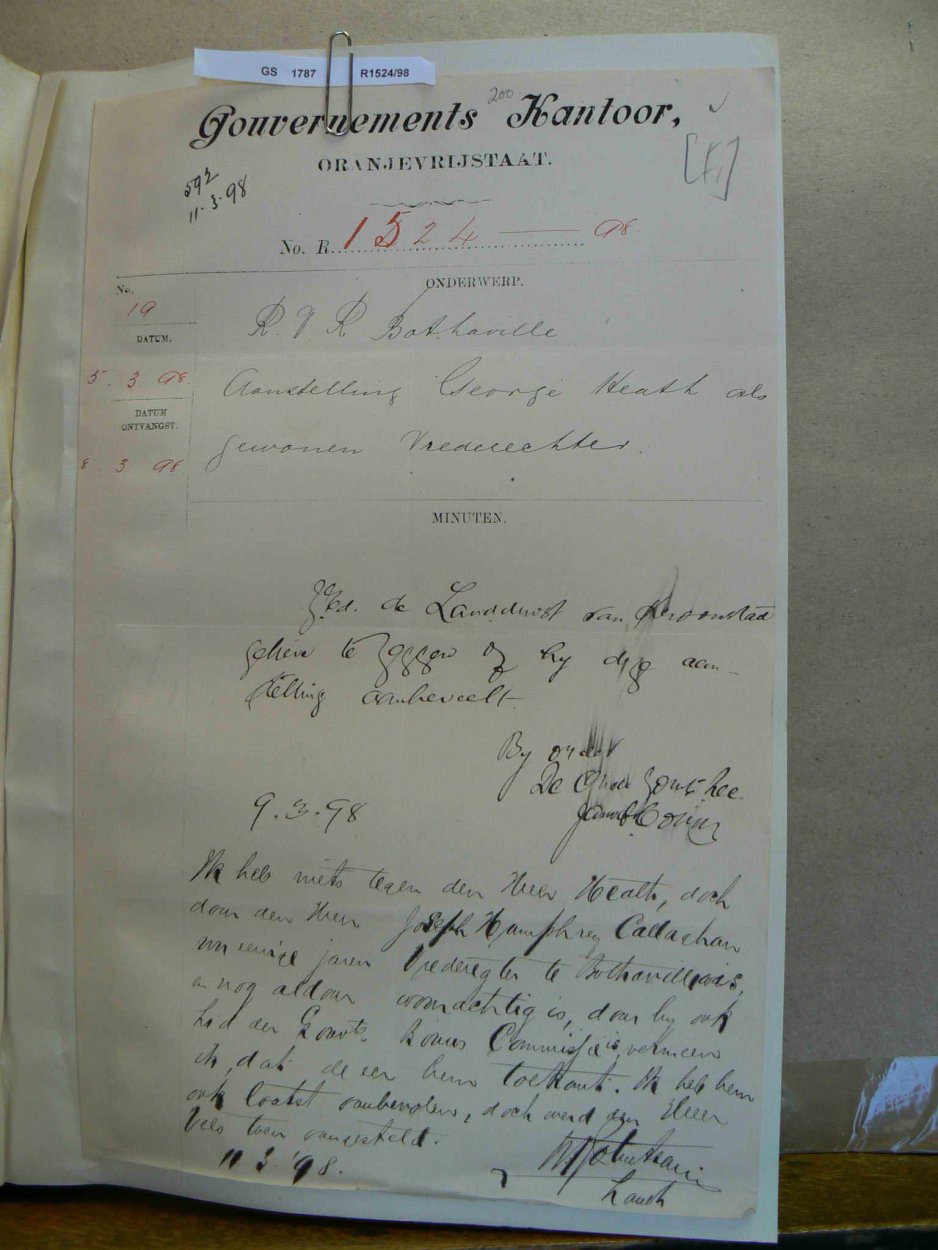 GS 1787 R1524/98
200
Gouvernements Kantoor,
ORANJEVRIJSTAAT.
592
11.3.98
No. R. 1524 — 98
No.
19
ONDERWERP.
R. V R Bothaville
DATUM.
5. 3. 98.
Aanstelling George Heath als
DATUM
ONTVANGST.
8. 3 98
gewonen Vrederechter.
MINUTEN.
de Landdrost van Kroonstad
gelieve te zeggen of hy deze aan-
stelling aanbeveelt.
By order
De Gouvts.
9.3.98
Ik heb niets tegen den Heer Heath, doch
daar den Heer Joseph Humphrey Callaghan
nu eenige jaren Vrederegter te Bothaville was,
en nog aldaar woonachtig is, daar hy ook
lid der Gouvts. Commissie is, vermeen
ik, dat de eer hem toekomt. Ik heb hem
ook laatst aanbevolen, doch werd den Heer
toen aangesteld.
11 3 '98.
Landt